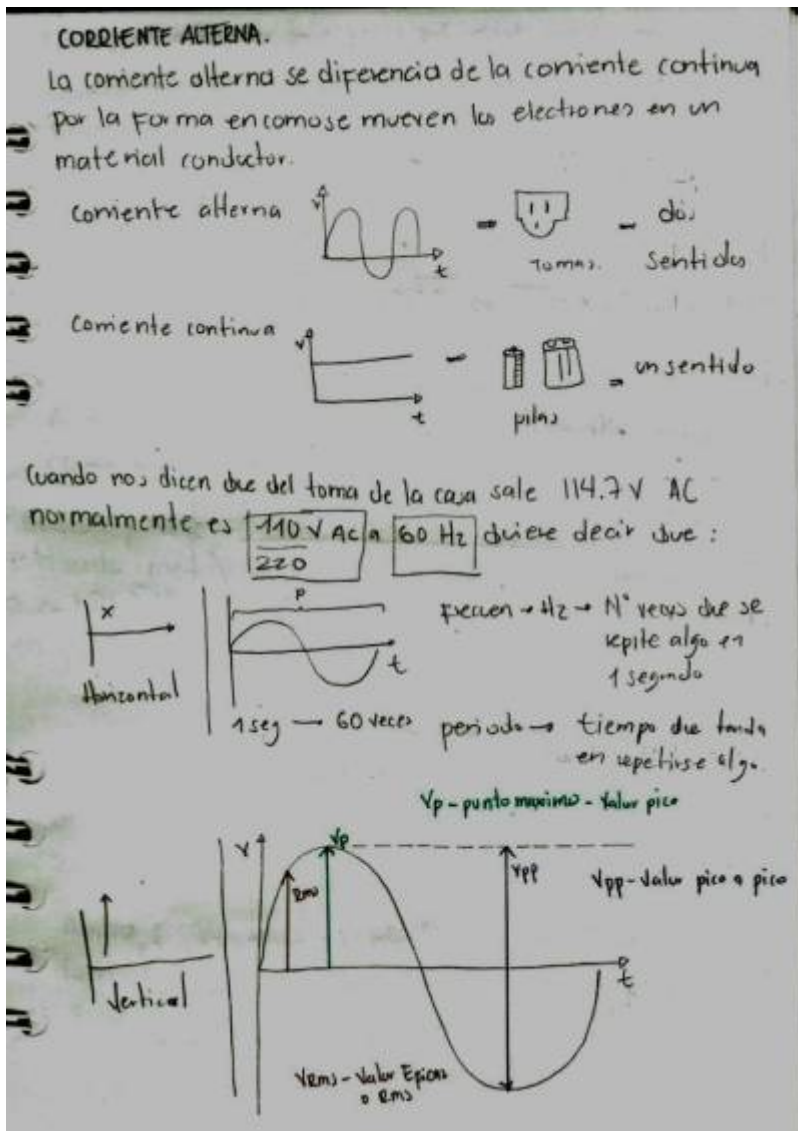 CORRIENTE ALTERNA.
La corriente alterna se diferencia de la corriente continua
por la forma en como se mueven los electrones en un
material conductor.
corriente alterna
V
t
Tomas.
dos
sentidos
Corriente continua
V
t
pilas
un sentido
Cuando nos dicen que del toma de la casa sale 114.7 V AC
normalmente es 110 V AC a 60 Hz quiere decir que :
220
X
Horizontal
P
t
1 seg → 60 veces
frecuen → Hz → N° veces que se
repite algo en
1 segundo
periodo → tiempo que tarda
en repetirse algo.
Vp - punto maximo - Valor pico
V
Vp
Rms
Vpp
Vpp - Valor pico a pico
t
Vertical
VRms - Valor Eficas
o Rms